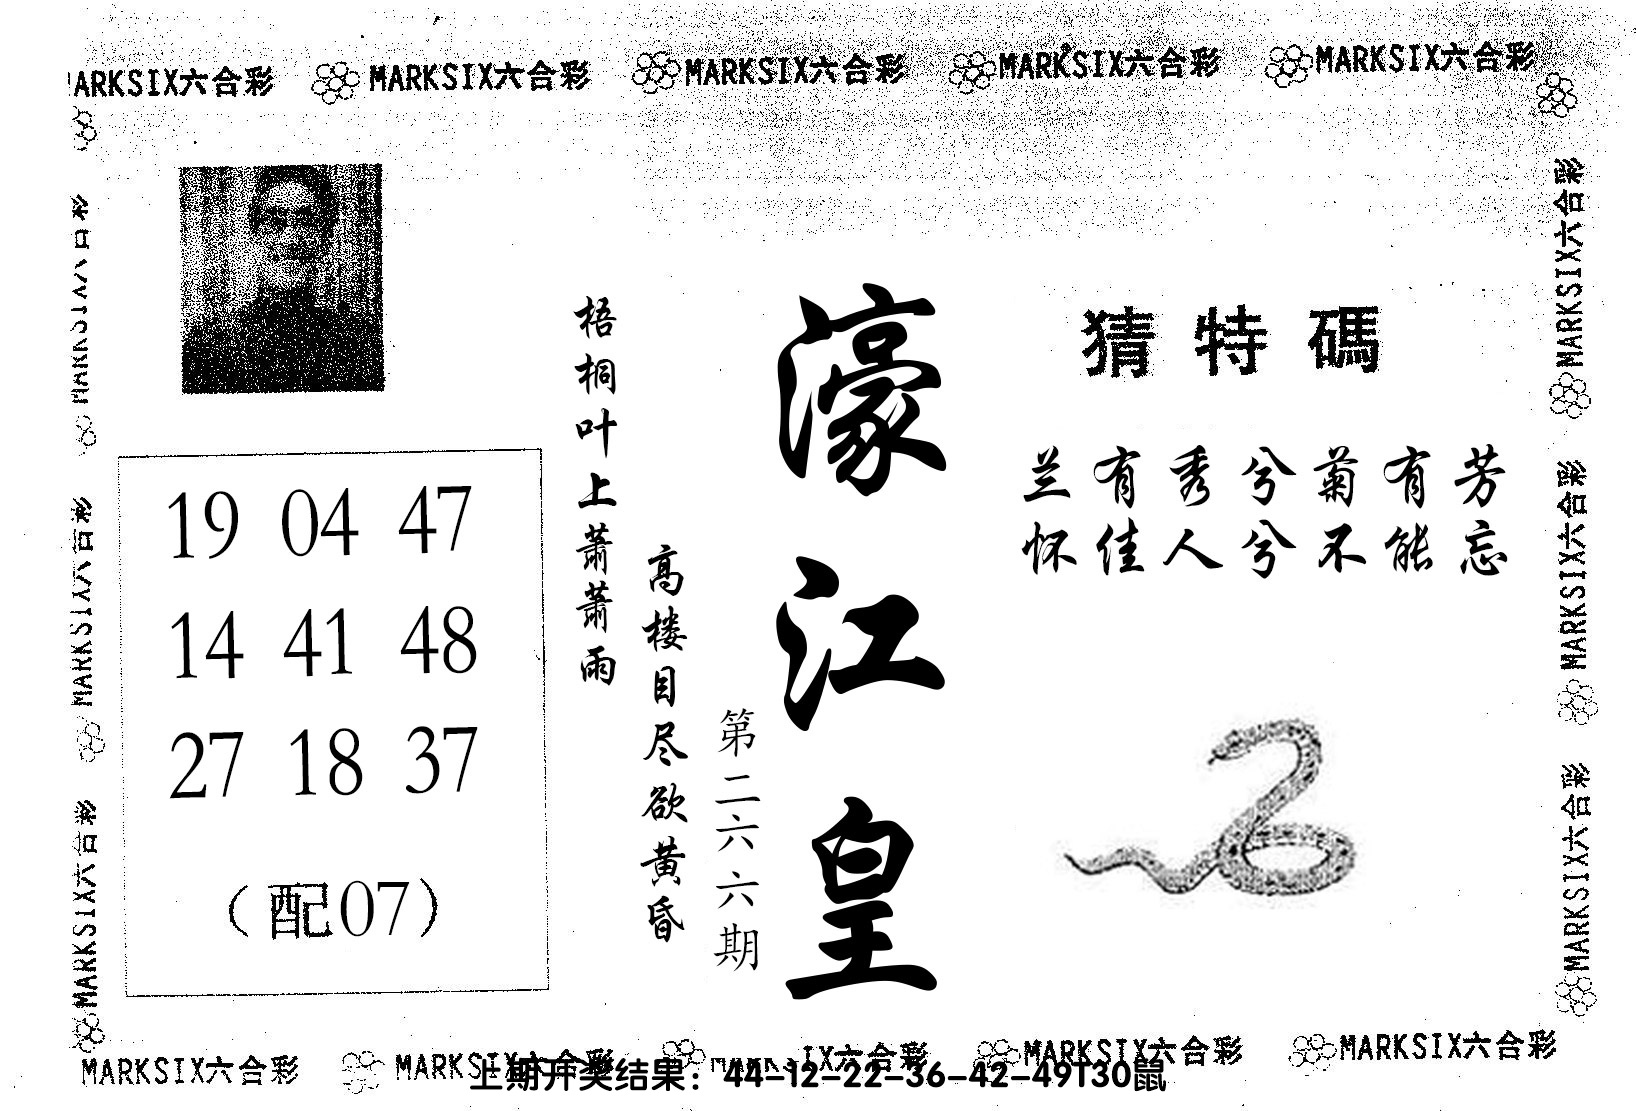 MARKSIX六合彩 MARKSIX六合彩 MARKSIX六合彩 MARKSIX六合彩 MARKSIX六合彩
猜特碼
兰有秀兮菊有芳
怀佳人兮不能忘
濠江皇
第二六六期
高楼目尽欲黄昏
梧桐叶上萧萧雨
19 04 47
14 41 48
27 18 37
（配07）
MARKSIX六合彩
MARKSIX六合彩
MARKSIX六合彩
MARKSIX六合彩
MARKSIX六合彩
MARKSIX六合彩
MARKSIX六合彩 MARKSIX六合彩 MARKSIX六合彩 MARKSIX六合彩 MARKSIX六合彩
上期开奖结果：44-12-22-36-42-49T30鼠